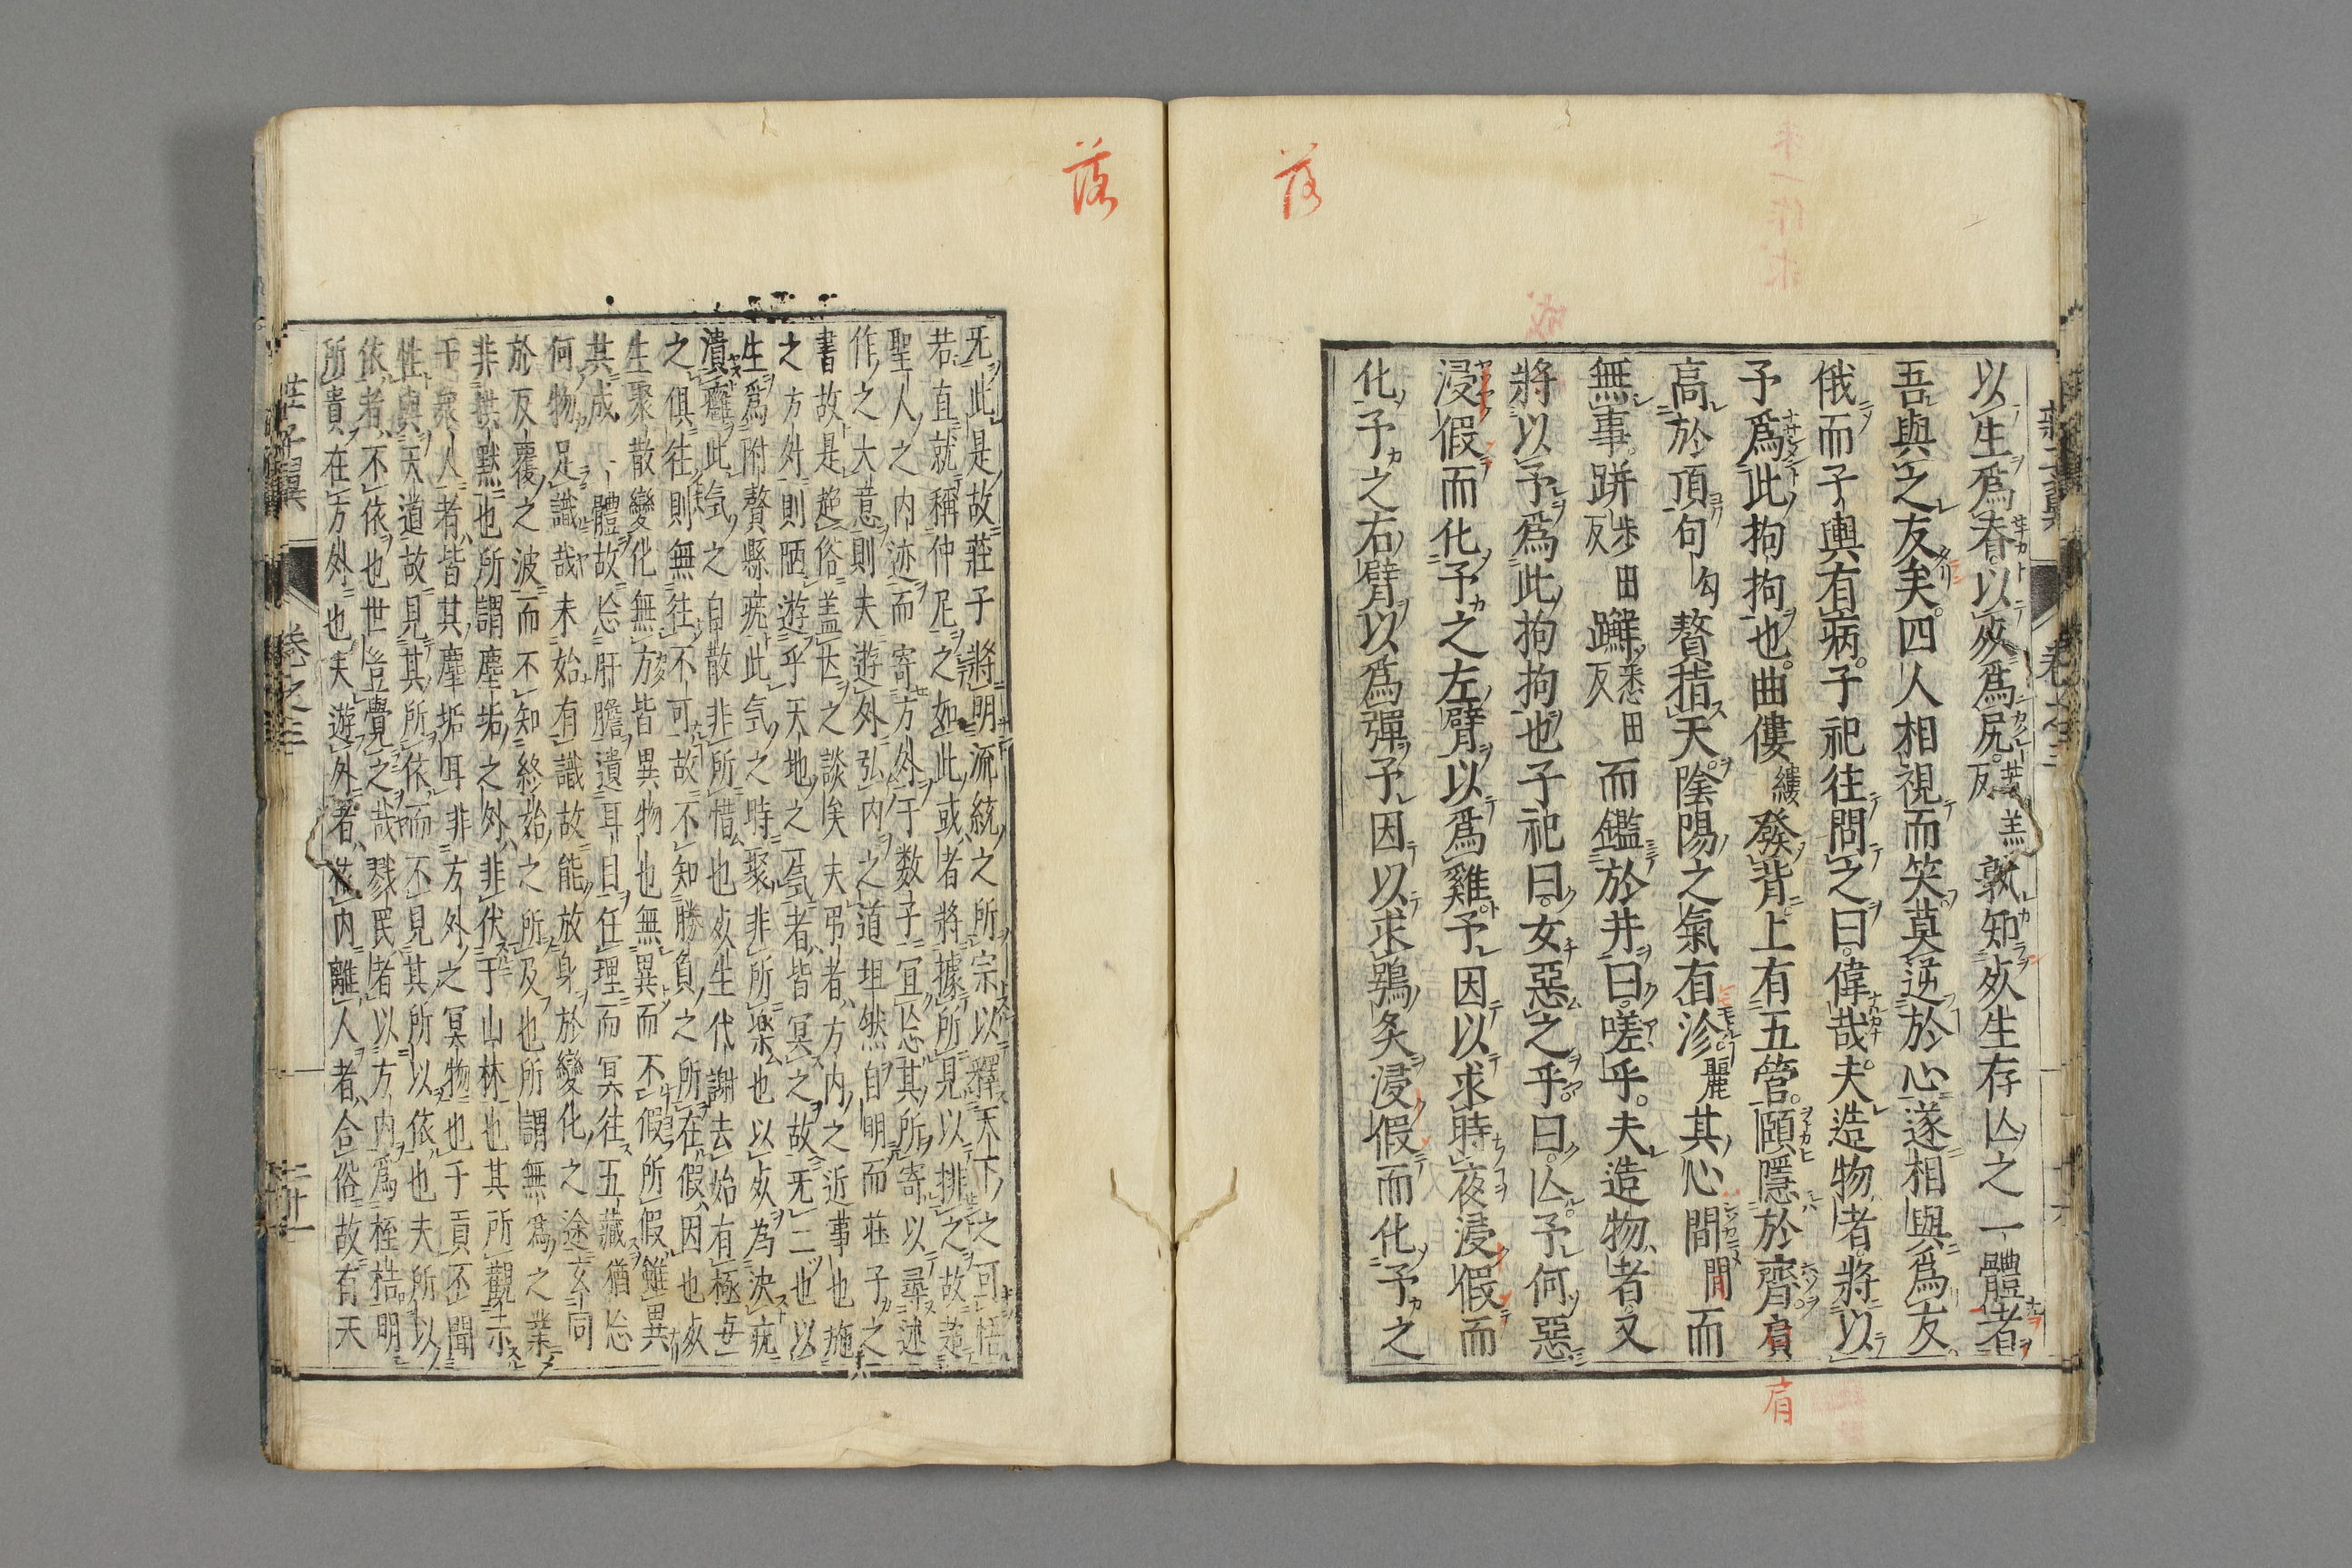 落
以生爲脊以死爲尻苦羔反孰知死生存亾之一體者
吾與之友矣四人相視而笑莫逆於心遂相與爲友
俄而子輿有病子祀往問之曰偉哉夫造物者將以
予爲此拘拘也曲僂縷發背上有五管頤隱於齊肩
高於頂句勾贅指天陰陽之氣有沴麗其心間閒而
無事跰步田反𨇤悉田反而鑑於井曰嗟乎夫造物者又
將以予爲此拘拘也子祀曰女惡之乎曰亾予何惡
浸假而化予之左臂以爲雞予因以求時夜浸假而
化予之右臂以爲彈予因以求鴞炙浸假而化予之
肩
落
旡此是故莊子將明流統之所宗以釋天下之可悟
若直就稱仲尼之如此或者將據所見以排之故超
聖人之内迹而寄方外于数子宜忘其所寄以尋述
作之大意則夫遊外弘内之道坦然自明而莊子之
書故是超俗盖世之談矣夫弔者方内之近事也施
之方外則陋遊乎天地之一氣者皆冥之故无二也以
生爲附贅縣疣此気之時聚非所楽也以死為決疣
潰癰此気之自散非所惜也死生代謝去始有極與
之俱往則無往不可故不知勝負之所在假因也死
生聚散變化無方皆異物也無異而不假所假雖異
其成一體故忘肝膽遺耳目任理而冥往五藏猶忘
何物足識哉未始有識故能放身於變化之途玄同
於反覆之波而不知終始之所及也所謂無爲之業
非拱默也所謂塵垢之外非伏于山林也其所觀示
于衆人者皆其塵垢耳非方外之冥物也子貢不聞
性與天道故見其所依而不見其所以依也夫所以
依者不依也世豈覺之哉戮民者以方内爲桎梏明
所貴在方外也夫遊外者依内離人者合俗故有天
莊子翼
卷之三
二十一